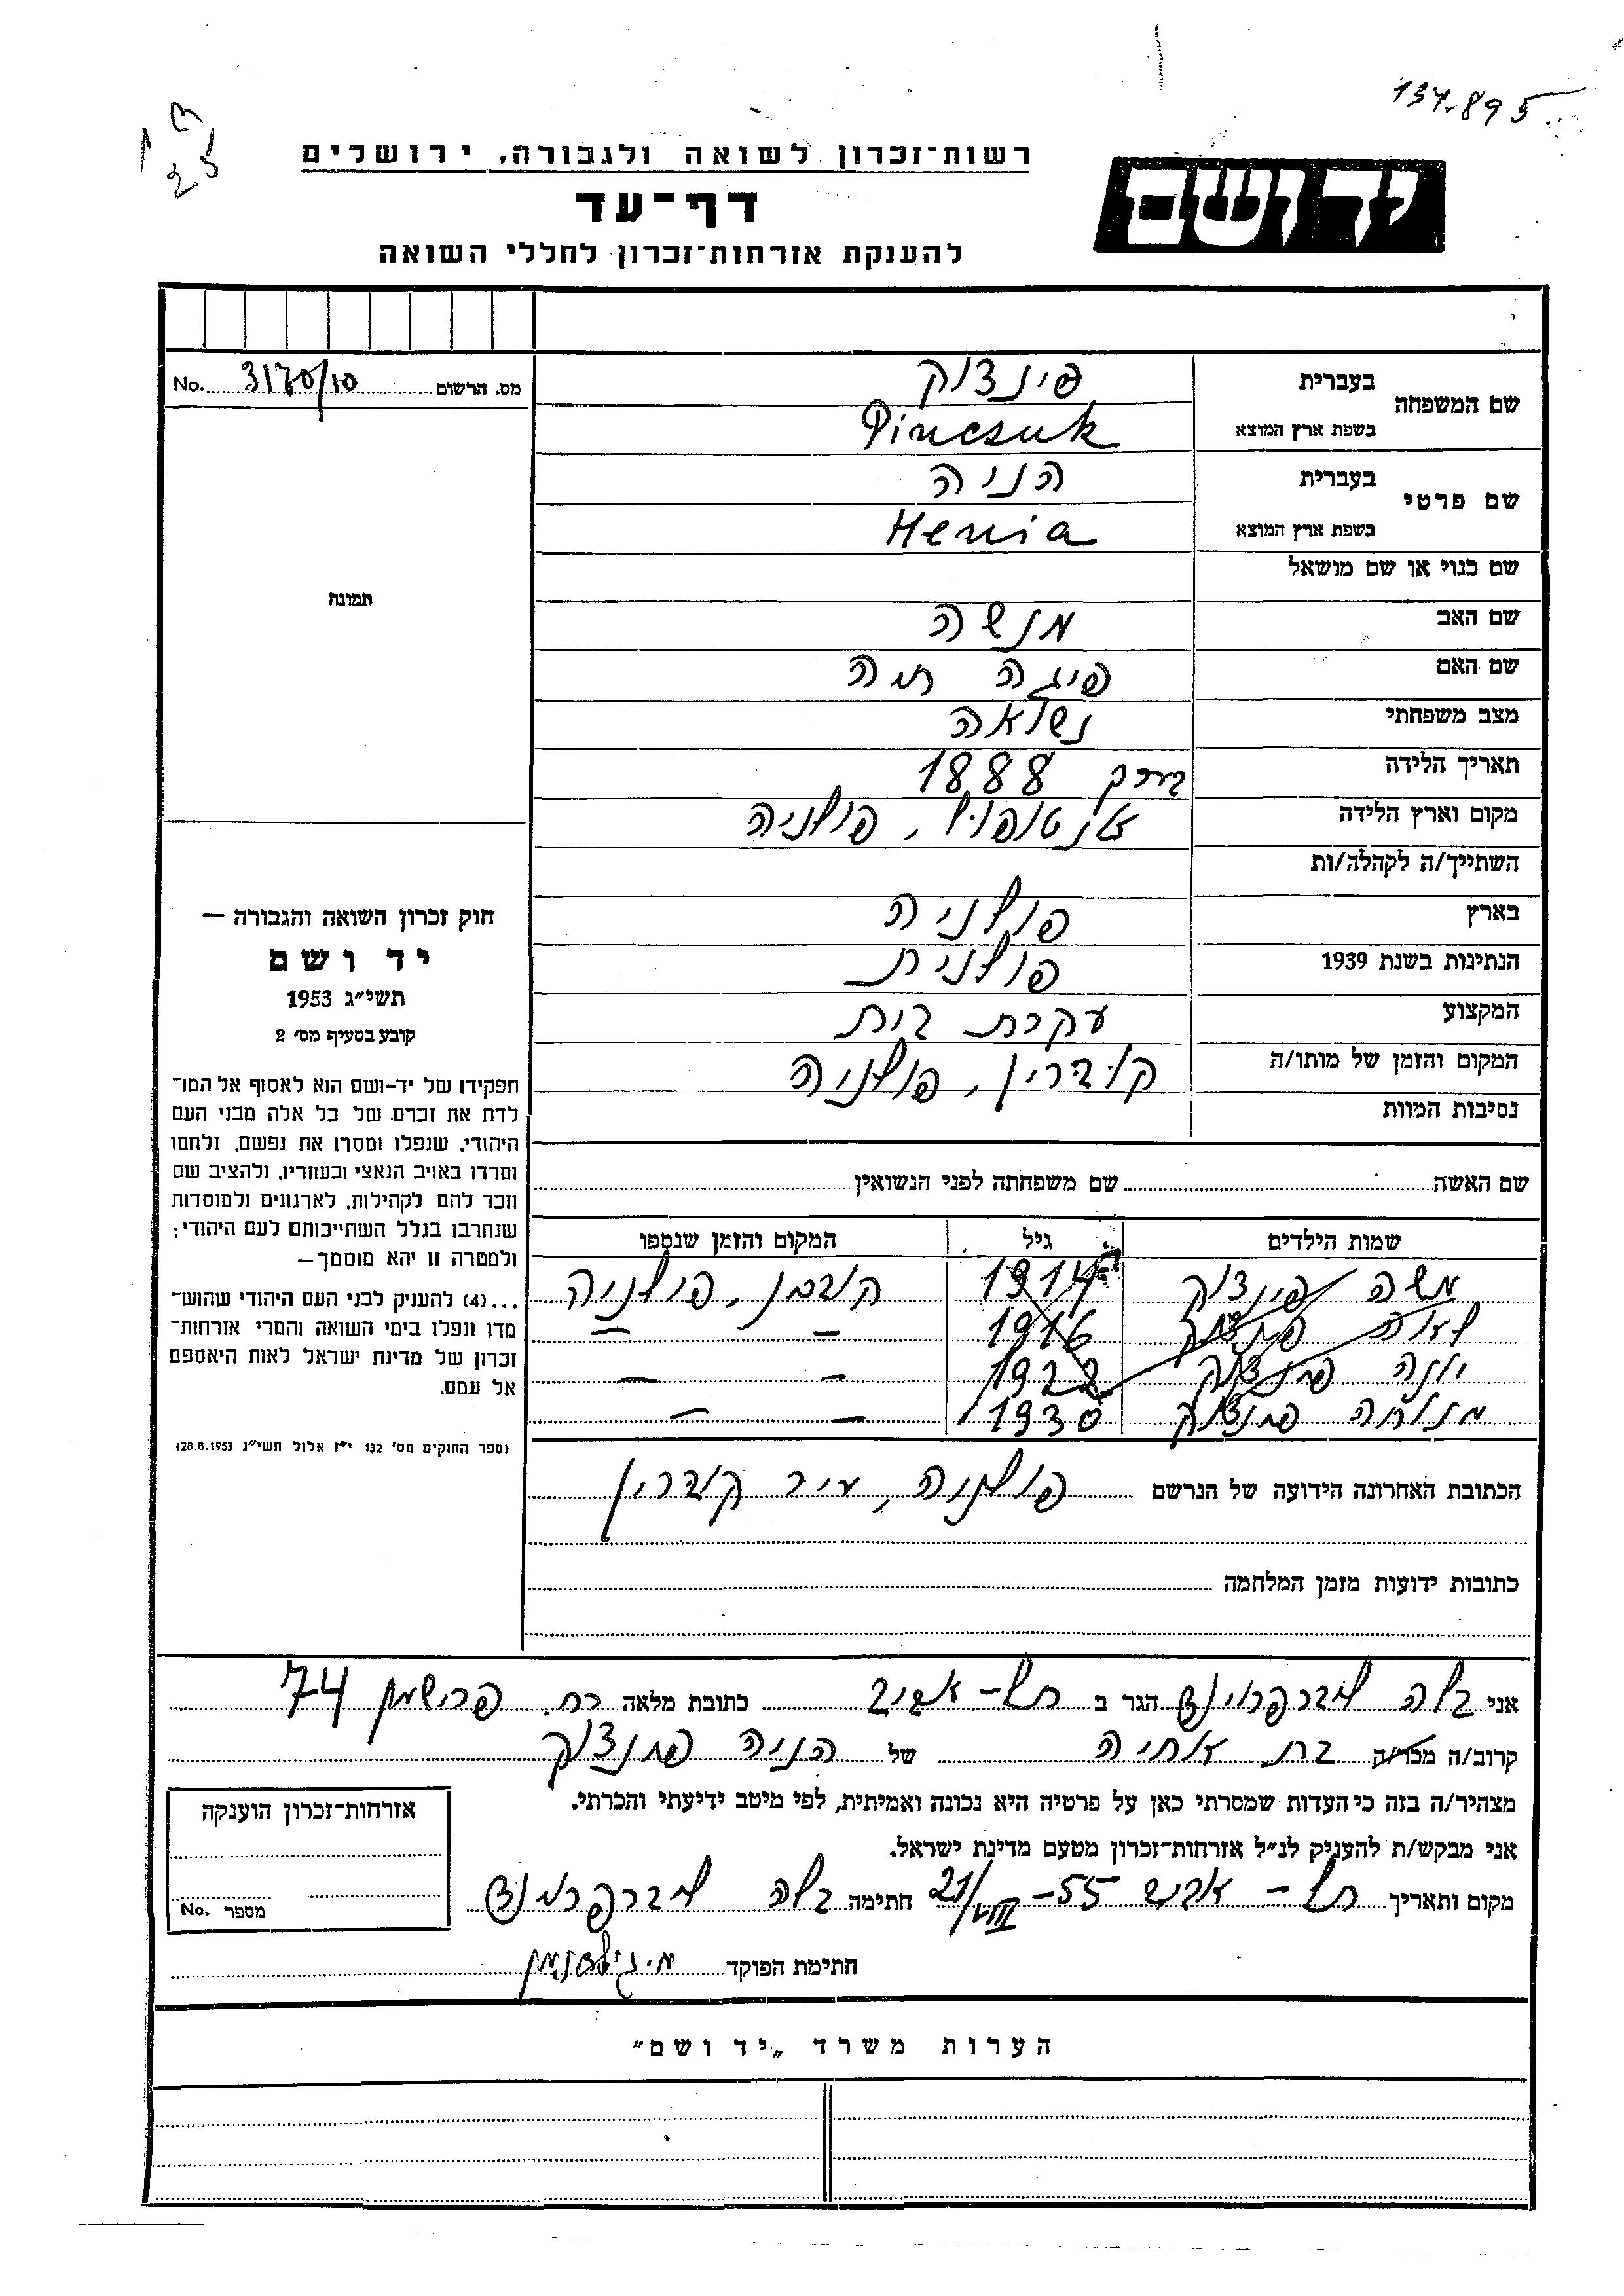 137.895
יד ושם
רשות־זכרון לשואה ולגבורה, ירושלים
דף־עד
להענקת אזרחות־זכרון לחללי השואה
מס. הרשום 3170/10 No.
שם המשפחה
בעברית פינצוק
בשפת ארץ המוצא Pinczuk
שם פרטי
בעברית הניה
בשפת ארץ המוצא Henia
שם כנוי או שם מושאל
תמונה
שם האב מנשה
שם האם פיגה חיה
מצב משפחתי נשואה
תאריך הלידה בערך 1888
מקום וארץ הלידה אנטופול, פולניה
השתייך/ה לקהלה/ות
בארץ פולניה
הנתינות בשנת 1939 פולנית
המקצוע עקרת בית
המקום והזמן של מותו/ה קוברין, פולניה
נסיבות המוות
חוק זכרון השואה והגבורה —
יד ושם
תשי״ג 1953
קובע בסעיף מס׳ 2
תפקידו של יד-ושם הוא לאסוף אל המו־
לדת את זכרם של כל אלה מבני העם
היהודי, שנפלו ומסרו את נפשם, נלחמו
ומרדו באויב הנאצי ובעוזריו, ולהציב שם
וזכר להם לקהילות, לארגונים ולמוסדות
שנחרבו בגלל השתייכותם לעם היהודי;
ולמטרה זו יהא מוסמך—
...(4) להעניק לבני העם היהודי שהוש־
מדו ונפלו בימי השואה והמרי אזרחות־
זכרון של מדינת ישראל לאות היאספם
אל עמם.
(ספר החוקים מס׳ 132 י״ז אלול תשי״ג 28.8.1953)
שם האשה שם משפחתה לפני הנשואין
שמות הילדים גיל המקום והזמן שנספו
משה פינצוק 1914 קוברין, פולניה
פינצוק 1916 — —
יונה פינצוק 1922 — —
פינצוק 1930 — —
הכתובת האחרונה הידועה של הנרשם פולניה, עיר קוברין
כתובות ידועות מזמן המלחמה
אני בלה ליברפרוינד הגר ב תל-אביב כתובת מלאה רח. פרישמן 74
קרוב/ה מכר/ה בת אחיה של הניה פינצוק
מצהיר/ה בזה כי העדות שמסרתי כאן על פרטיה היא נכונה ואמיתית, לפי מיטב ידיעתי והכרתי.
אני מבקש/ת להעניק לנ״ל אזרחות־זכרון מטעם מדינת ישראל.
מקום ותאריך תל-אביב 21/VIII-55 חתימה בלה ליברפרוינד
חתימת הפוקד
אזרחות־זכרון הוענקה
מספר No.
הערות משרד „יד ושם״